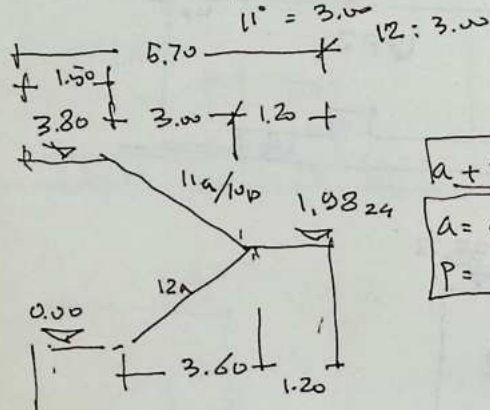 11° = 3.00
12 : 3.00
5.70
1.50
3.80 3.00 1.20
11a/10p
1,98 24
a +
a =
P =
12a
0.00
3.60
1.20